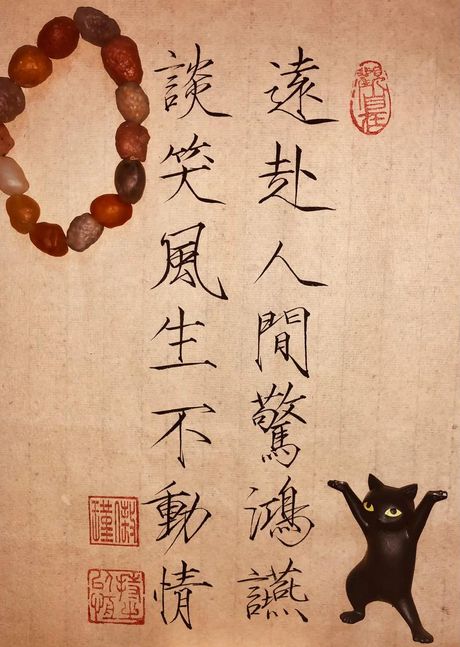 觀自在
遠赴人間驚鴻讌
談笑風生不動情